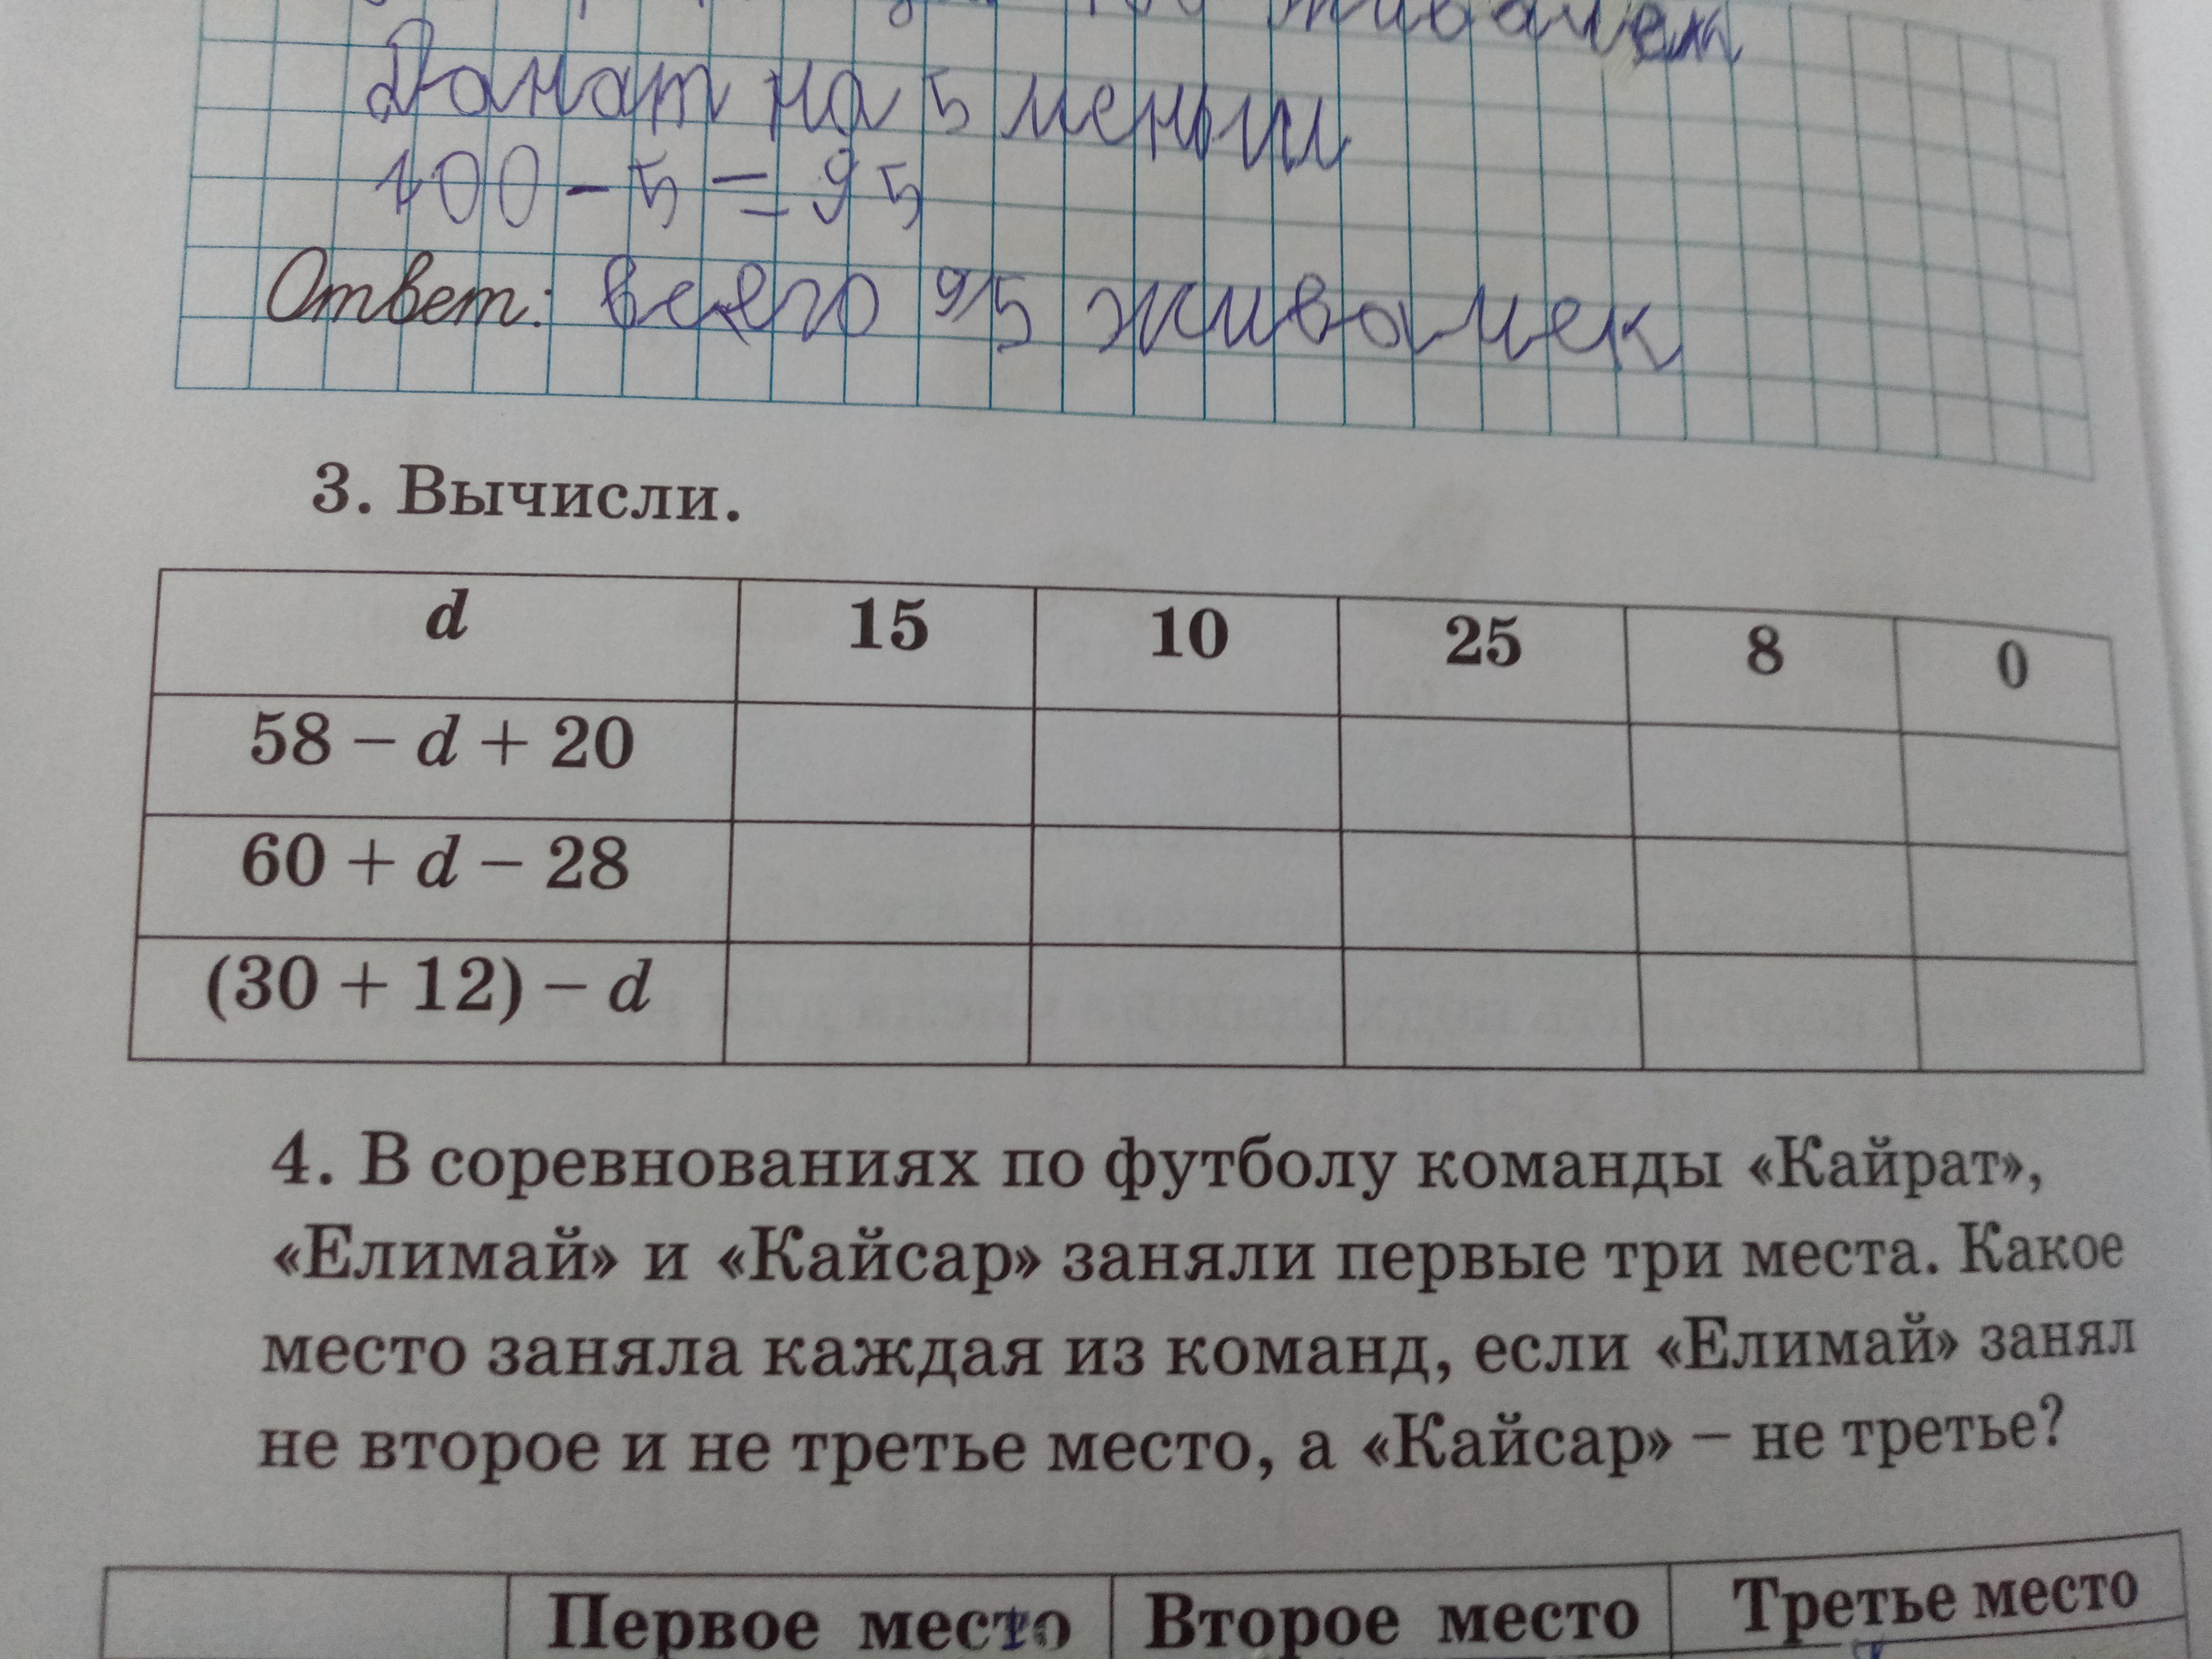 Данат на 5 меньш
100 - 5 = 95
Ответ: всего 95 живочек
3. Вычисли.
d 15 10 25 8 0
58 – d + 20
60 + d – 28
(30 + 12) – d
4. В соревнованиях по футболу команды «Кайрат»,
«Елимай» и «Кайсар» заняли первые три места. Какое
место заняла каждая из команд, если «Елимай» занял
не второе и не третье место, а «Кайсар» – не третье?
Первое место Второе место Третье место